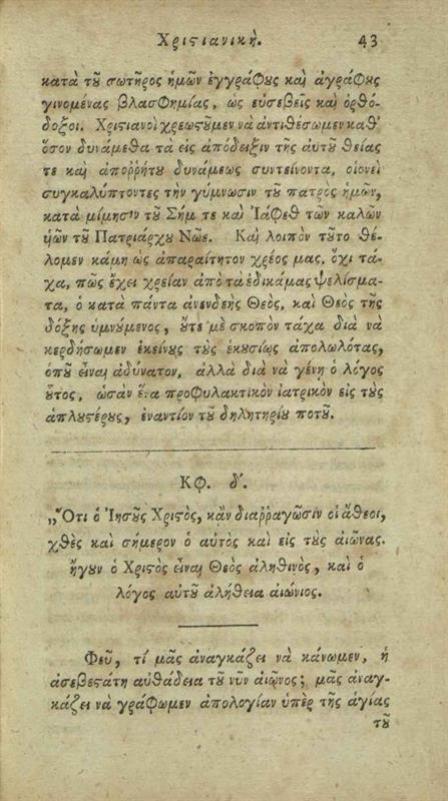 Χριστιανική. 43
κατὰ τοῦ σωτῆρος ἡμῶν ἐγγράφους καὶ ἀγράφους
γινομένας βλασφημίας, ὡς εὐσεβεῖς καὶ ὀρθό-
δοξοι. Χριστιανοὶ χρεωστοῦμεν νὰ ἀντιθέσωμεν καθ'
ὅσον δυνάμεθα τὰ εἰς ἀπόδειξιν τῆς αὐτοῦ θείας
τε καὶ ἀποῤῥήτου δυνάμεως συντείνοντα, οἱονεὶ
συγκαλύπτοντες τὴν γύμνωσιν τοῦ πατρὸς ἡμῶν,
κατὰ μίμησιν τοῦ Σήμ τε καὶ Ἰάφεθ τῶν καλῶν
ὑῶν τοῦ Πατριάρχου Νῶε. Καὶ λοιπὸν τοῦτο θέ-
λομεν κάμῃ ὡς ἀπαραίτητον χρέος μας, ὄχι τά-
χα, πῶς ἔχει χρείαν ἀπὸ τὰ ἐδικάμας ψελίσμα-
τα, ὁ κατὰ πάντα ἀνενδεὴς Θεὸς, καὶ Θεὸς τῆς
δόξης ὑμνούμενος, οὔτε μὲ σκοπὸν τάχα διὰ νὰ
κερδήσωμεν ἐκείνους τοὺς ἑκουσίως ἀπολωλότας,
ὁποῦ εἶναι ἀδύνατον, ἀλλὰ διὰ νὰ γένῃ ὁ λόγος
οὗτος, ὡσὰν ἕνα προφυλακτικὸν ἰατρικὸν εἰς τοὺς
ἁπλουστέρους, ἐναντίον τοῦ δηλητηρίου ποτοῦ.
Κφ. δ'.
„Ὅτι ὁ Ἰησοῦς Χριστὸς, κᾂν διαῤῥαγῶσιν οἱ ἄθεοι,
χθὲς καὶ σήμερον ὁ αὐτὸς καὶ εἰς τοὺς αἰῶνας.
ἤγουν ὁ Χριστὸς εἶναι Θεὸς ἀληθινὸς, καὶ ὁ
λόγος αὐτοῦ ἀλήθεια αἰώνιος.
Φεῦ, τί μᾶς ἀναγκάζει νὰ κάνωμεν, ἡ
ἀσεβεστάτη αὐθάδεια τοῦ νῦν αἰῶνος; μᾶς ἀναγ-
κάζει νὰ γράφωμεν ἀπολογίαν ὑπὲρ τῆς ἁγίας
τοῦ